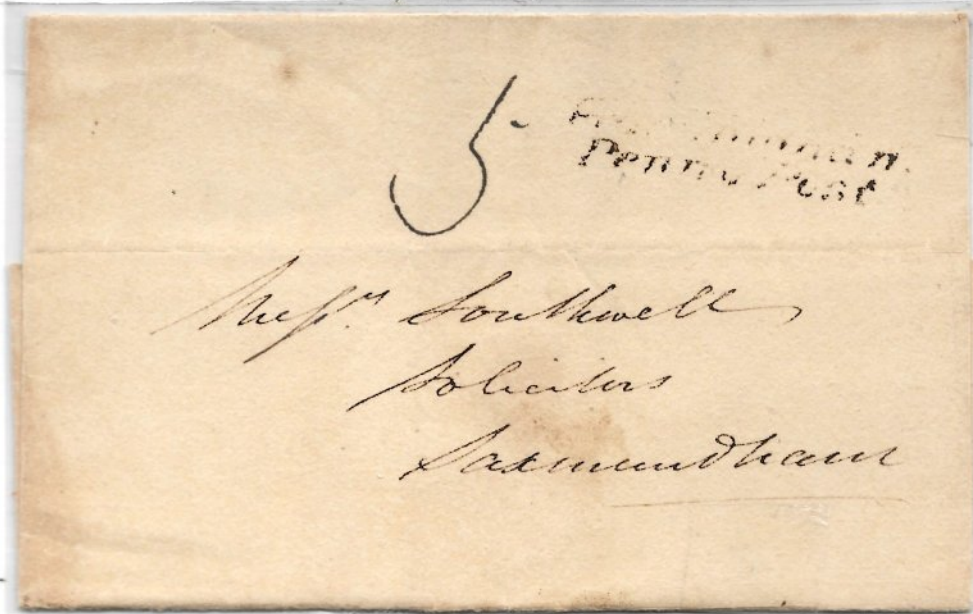 5
Penny Post
Messrs. Southwell
Solicitors
Saxmundham